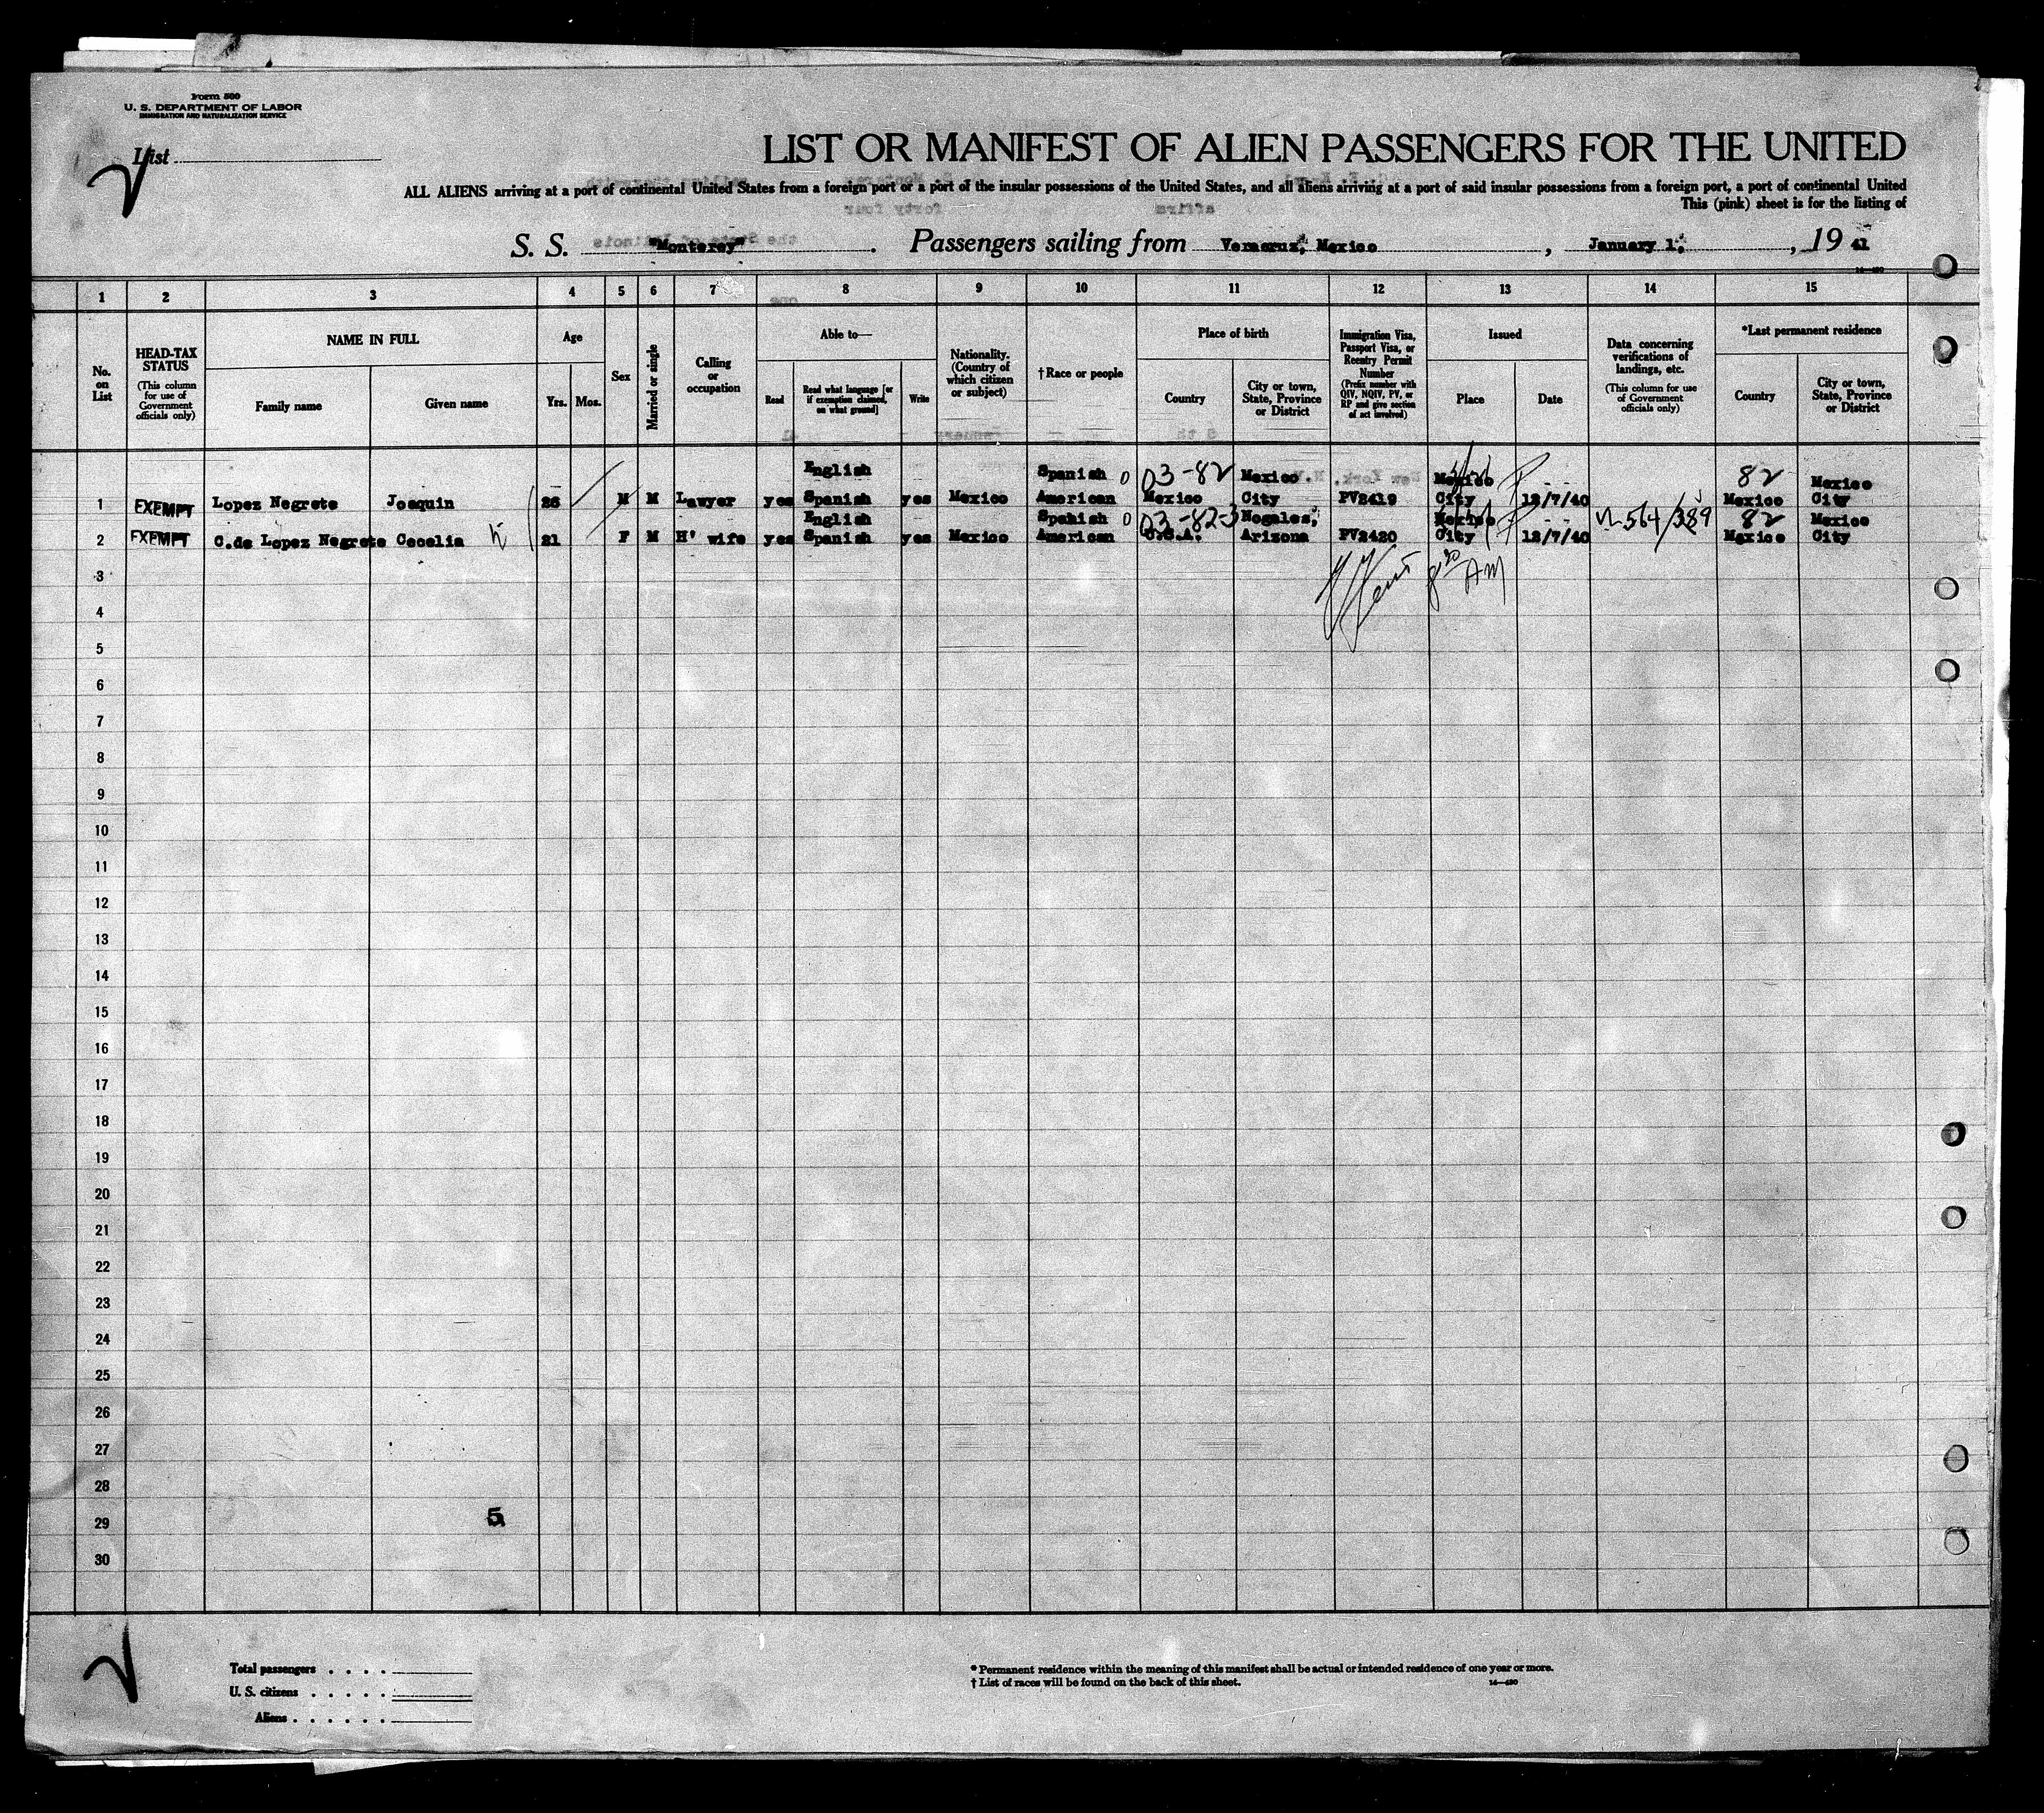 Form 500
U. S. DEPARTMENT OF LABOR
IMMIGRATION AND NATURALIZATION SERVICE
List
LIST OR MANIFEST OF ALIEN PASSENGERS FOR THE UNITED
ALL ALIENS arriving at a port of continental United States from a foreign port or a port of the insular possessions of the United States, and all aliens arriving at a port of said insular possessions from a foreign port, a port of continental United
This (pink) sheet is for the listing of
S. S. "Monterey". Passengers sailing from Veracruz, Mexico, January 1, 19 41
1 2 3 4 5 6 7 8 9 10 11 12 13 14 15
No. on List
HEAD-TAX STATUS
(This column for use of Government officials only)
NAME IN FULL
Family name
Given name
Age
Yrs. Mos.
Sex
Married or single
Calling or occupation
Able to—
Read
Read what language [or if exemption claimed, on what ground]
Write
Nationality. (Country of which citizen or subject)
†Race or people
Place of birth
Country
City or town, State, Province or District
Immigration Visa, Passport Visa, or Reentry Permit Number
(Prefix number with QIV, NQIV, PV, or RP and give section of act involved)
Issued
Place
Date
Data concerning verifications of landings, etc.
(This column for use of Government officials only)
*Last permanent residence
Country
City or town, State, Province or District
English Spanish 03-82 Mexico Mexico 82 Mexico
1 EXEMPT Lopez Negrete Joaquin 26 M M Lawyer yes Spanish yes Mexico American Mexico City PV2419 City 12/7/40 Mexico City
English Spanish 03-82-3 Nogales, Mexico 564/389 82 Mexico
2 EXEMPT C.de Lopez Negrete Cecelia 21 F M H' wife yes Spanish yes Mexico American U.S.A. Arizona PV2420 City 12/7/40 Mexico City
8 20 AM
3
4
5
6
7
8
9
10
11
12
13
14
15
16
17
18
19
20
21
22
23
24
25
26
27
28
29
5
30
Total passengers . . . .
U. S. citizens . . . . .
Aliens . . . . . .
* Permanent residence within the meaning of this manifest shall be actual or intended residence of one year or more.
† List of races will be found on the back of this sheet.